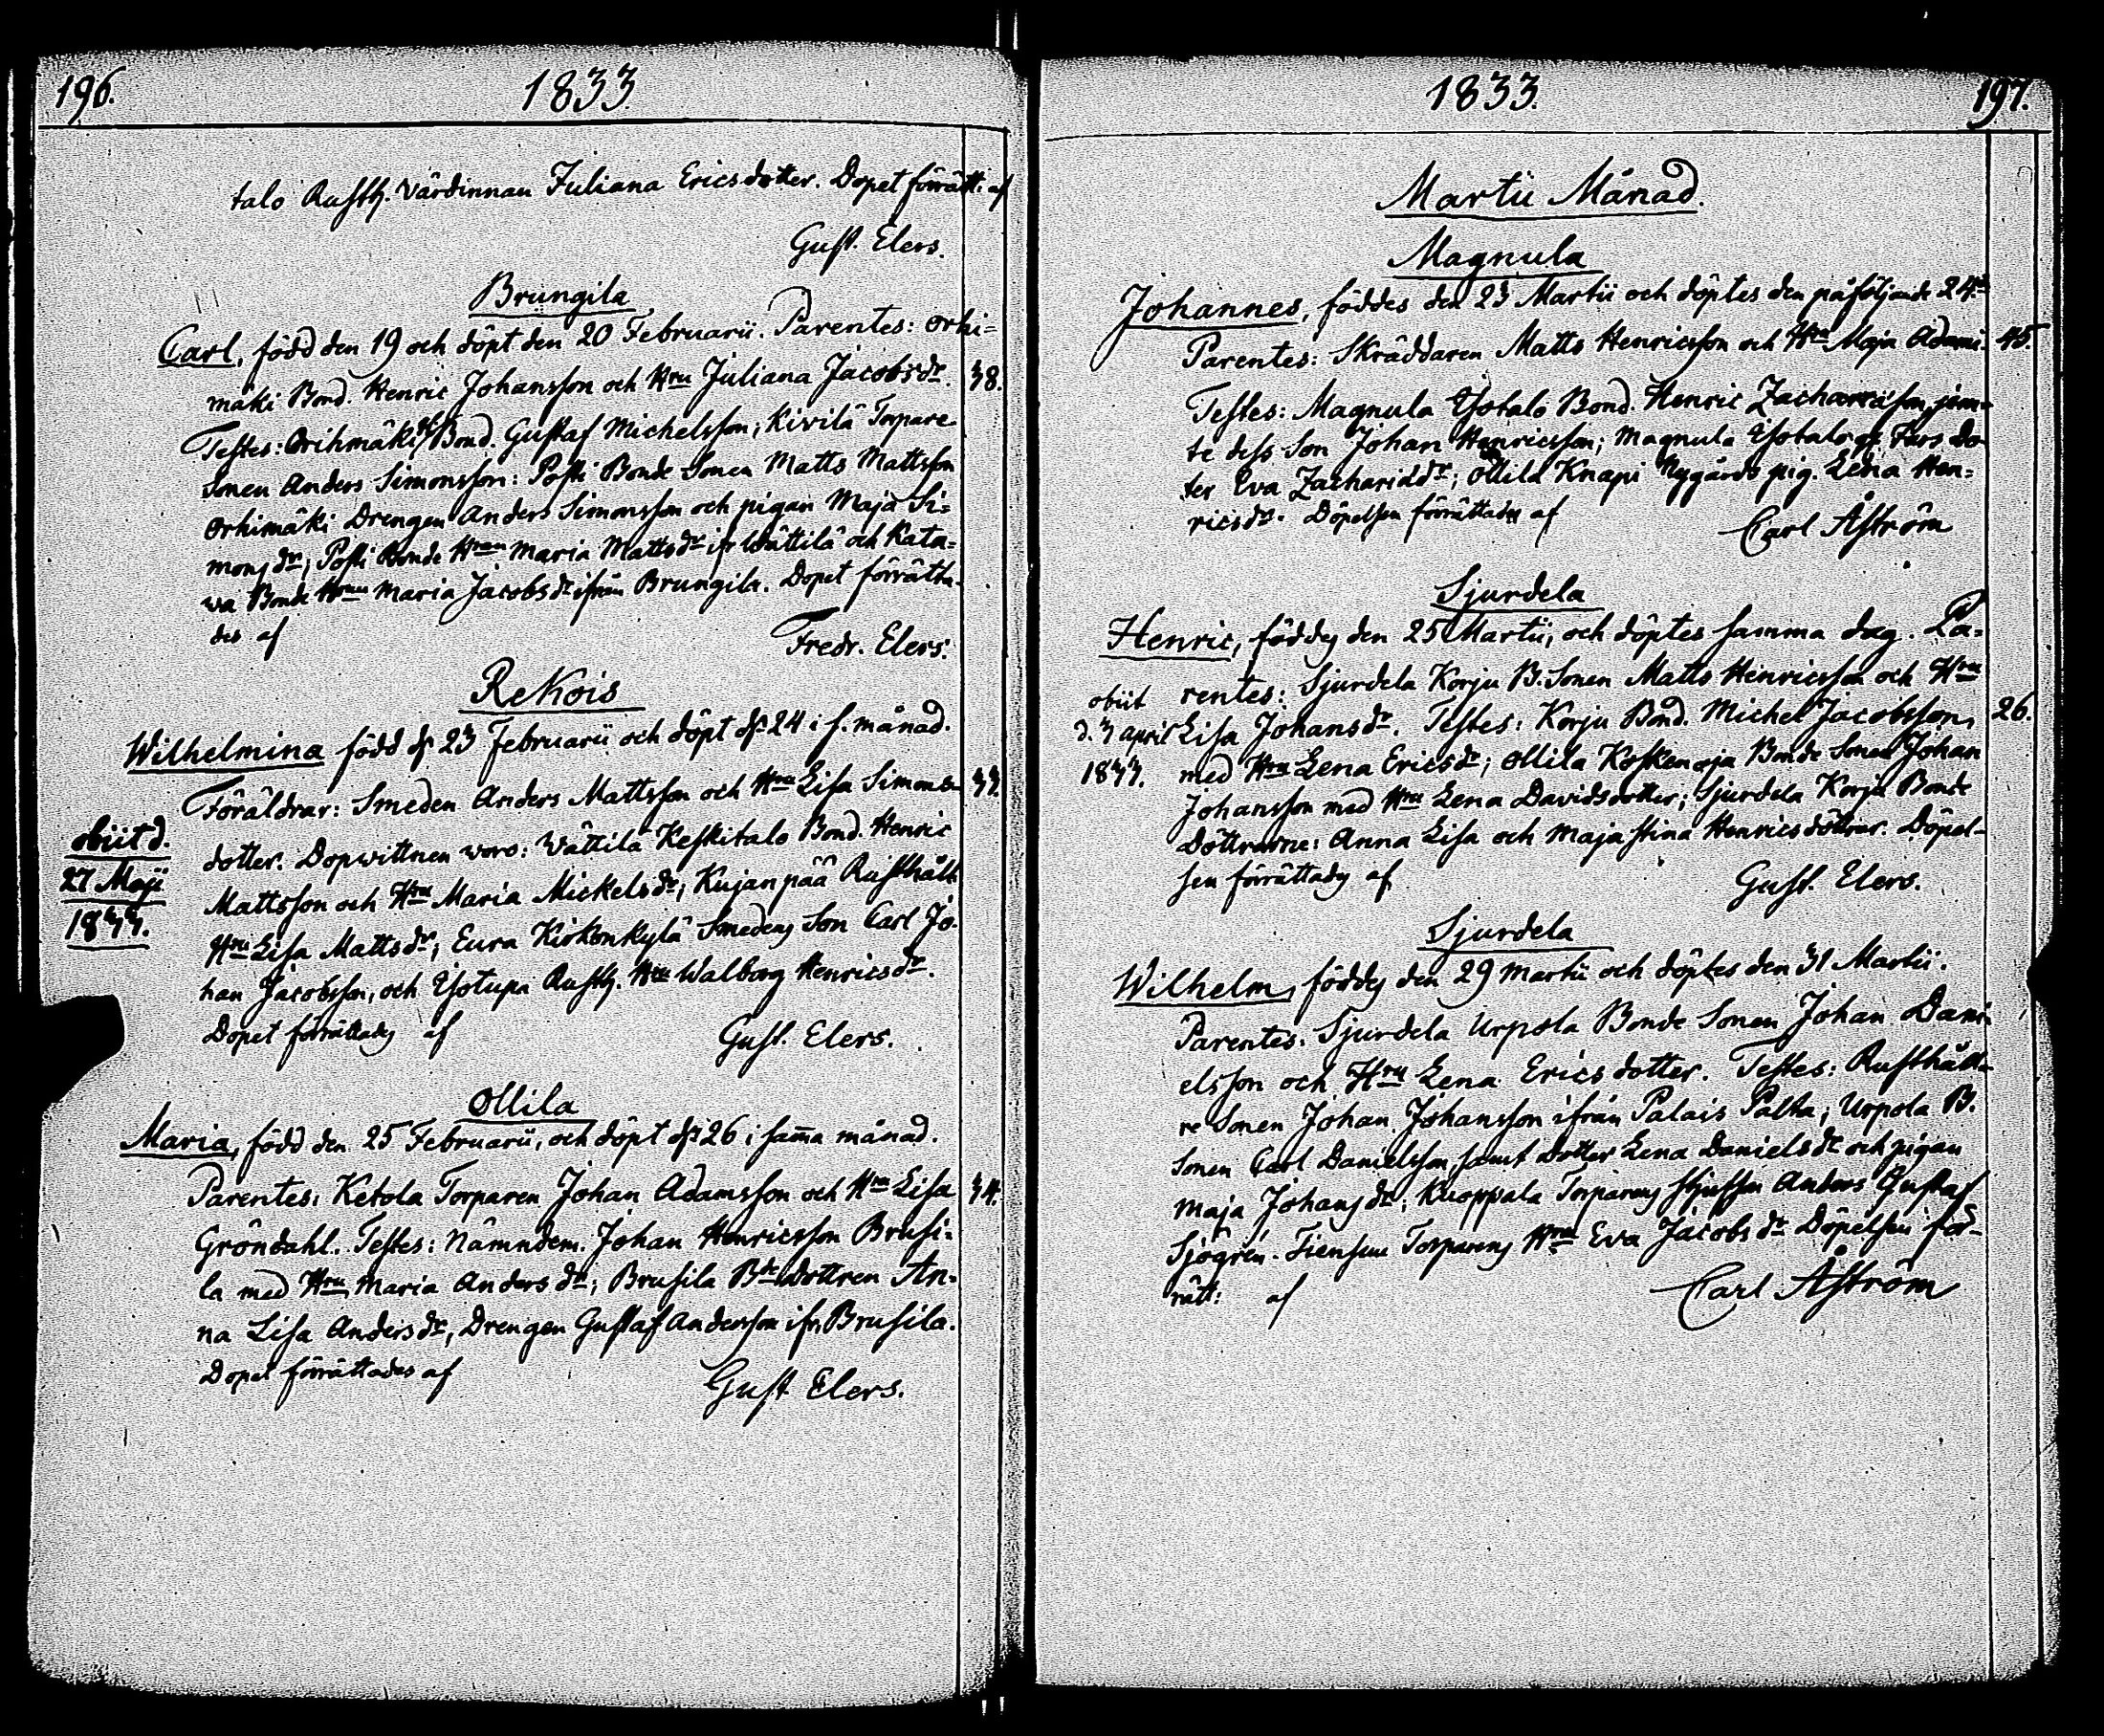 196.
1833
talo Rusth. Värdinnan Juliana Ericsdotter. Dopet förrätt. af
Gust. Elers.
Brungila
Carl, född den 19 och döpt den 20 Februarii. Parentes: Orhi=
mäki Bond. Henric Johansson och Hru Juliana Jacobsdr. 38.
Testes: Orihmäki Bond. Gustaf Michelsson; Kivilä Torpare
Sonen Anders Simonsson: Posti Bonde Sonen Matts Mattsson
Orhimäki Drengen Anders Simonsson och pigan Maja Si=
monsdr; Posti Bonde Hrun Maria Mattsdr ifr Wättilä och Kata=
wa Bonde Hrun Maria Jacobsdr ifrån Brungila. Dopet förrätta-
des af
Fredr. Elers.
Rekois
Wilhelmina född d. 23 Februarii och döpt d. 24 i s. månad.
Föräldrar: Smeden Anders Mattsson och Hru Lisa Simons- 33.
dotter. Dopwittnen woro: Wättilä Keskitalo Bond. Henric
Mattsson och Hru Maria Mickelsdr; Kujanpää Rusthåll.
Hru Lisa Mattsdr; Eura Kirkonkylä Smedens Son Carl Jo-
han Jacobsson, och Ylotupa Rusth. Hru Walborg Henricsdr.
Dopet förrättades af
Gust. Elers.
obiit d.
27 Maji
1833.
Ollila
Maria, född den 25 Februarii, och döpt d. 26 i samma månad.
Parentes: Ketola Torparen Johan Adamsson och Hru Lisa 34.
Gröndahl. Testes: Nämndem. Johan Henricsson Brusi=
la med Hru Maria Andersdr; Brusila Bde Dottren An-
na Lisa Andersdr, Drengen Gustaf Andersson ifr. Brusila.
Dopet förrättades af
Gust Elers.
1833.
197.
Martii Månad.
Magnula
Johannes, föddes den 23 Martii och döptes den påföljande 24de
Parentes: Skräddaren Matts Henricsson och Hru Maja Adami. 45
Testes: Magnula Ylotalo Bond. Henric Zachariasson, jem-
te dess Son Johan Henricsson; Magnula Fars Do-
ter Eva Zachariædr; Ollila Knapi Nygårds pig. Lena Hen=
ricsdr. Döpelsen förrättades af
Carl Åström
Sjurdela
Henric, föddes den 25 Martii, och döptes samma dag. Pa=
rentes: Sjurdela Korju B. Sonen Matts Henricsson och Hru
Lisa Johansdr. Testes: Korju Bond. Michel Jacobsson, 26.
med Hru Lena Ericsdr; Ollila Koskenoja Bonde Sonen Johan
Johansson med Hru Lena Davidsdotter; Sjurdela Korju Bonde
Döttrarne: Anna Lisa och Maja Stina Henricsdöttrar. Döpel-
sen förrättades af
Gust. Elers.
obiit
d. 3 April
1833.
Sjurdela
Wilhelm, föddes den 29 Martii och döptes den 31 Martii.
Parentes: Sjurdela Urpola Bonde Sonen Johan Dani-
elsson och Hru Lena Ericsdotter. Testes: Rusthålla-
re Sonen Johan Johansson ifrån Palais Palta; Urpola B.
Sonen Carl Danielsson, samt Dotter Lena Danielsdr och pigan
Maja Johansdr; Kuoppala Torparens Anders Gustaf
Sjögrén. Torparens Hru Eva Jacobsdr Döpelsen för-
rätt: af
Carl Åström